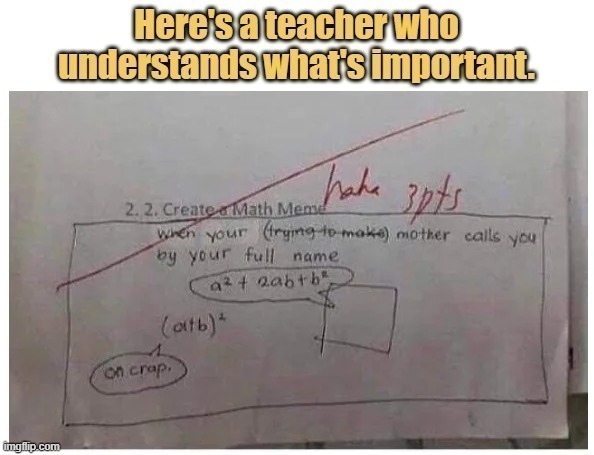 Here's a teacher who
understands what's important.
haha 3pts
2. 2. Create a Math Meme
when your (trying to make) mother calls you
by your full name
a² + 2ab + b²
(a+b)²
oh crap.
imgflip.com